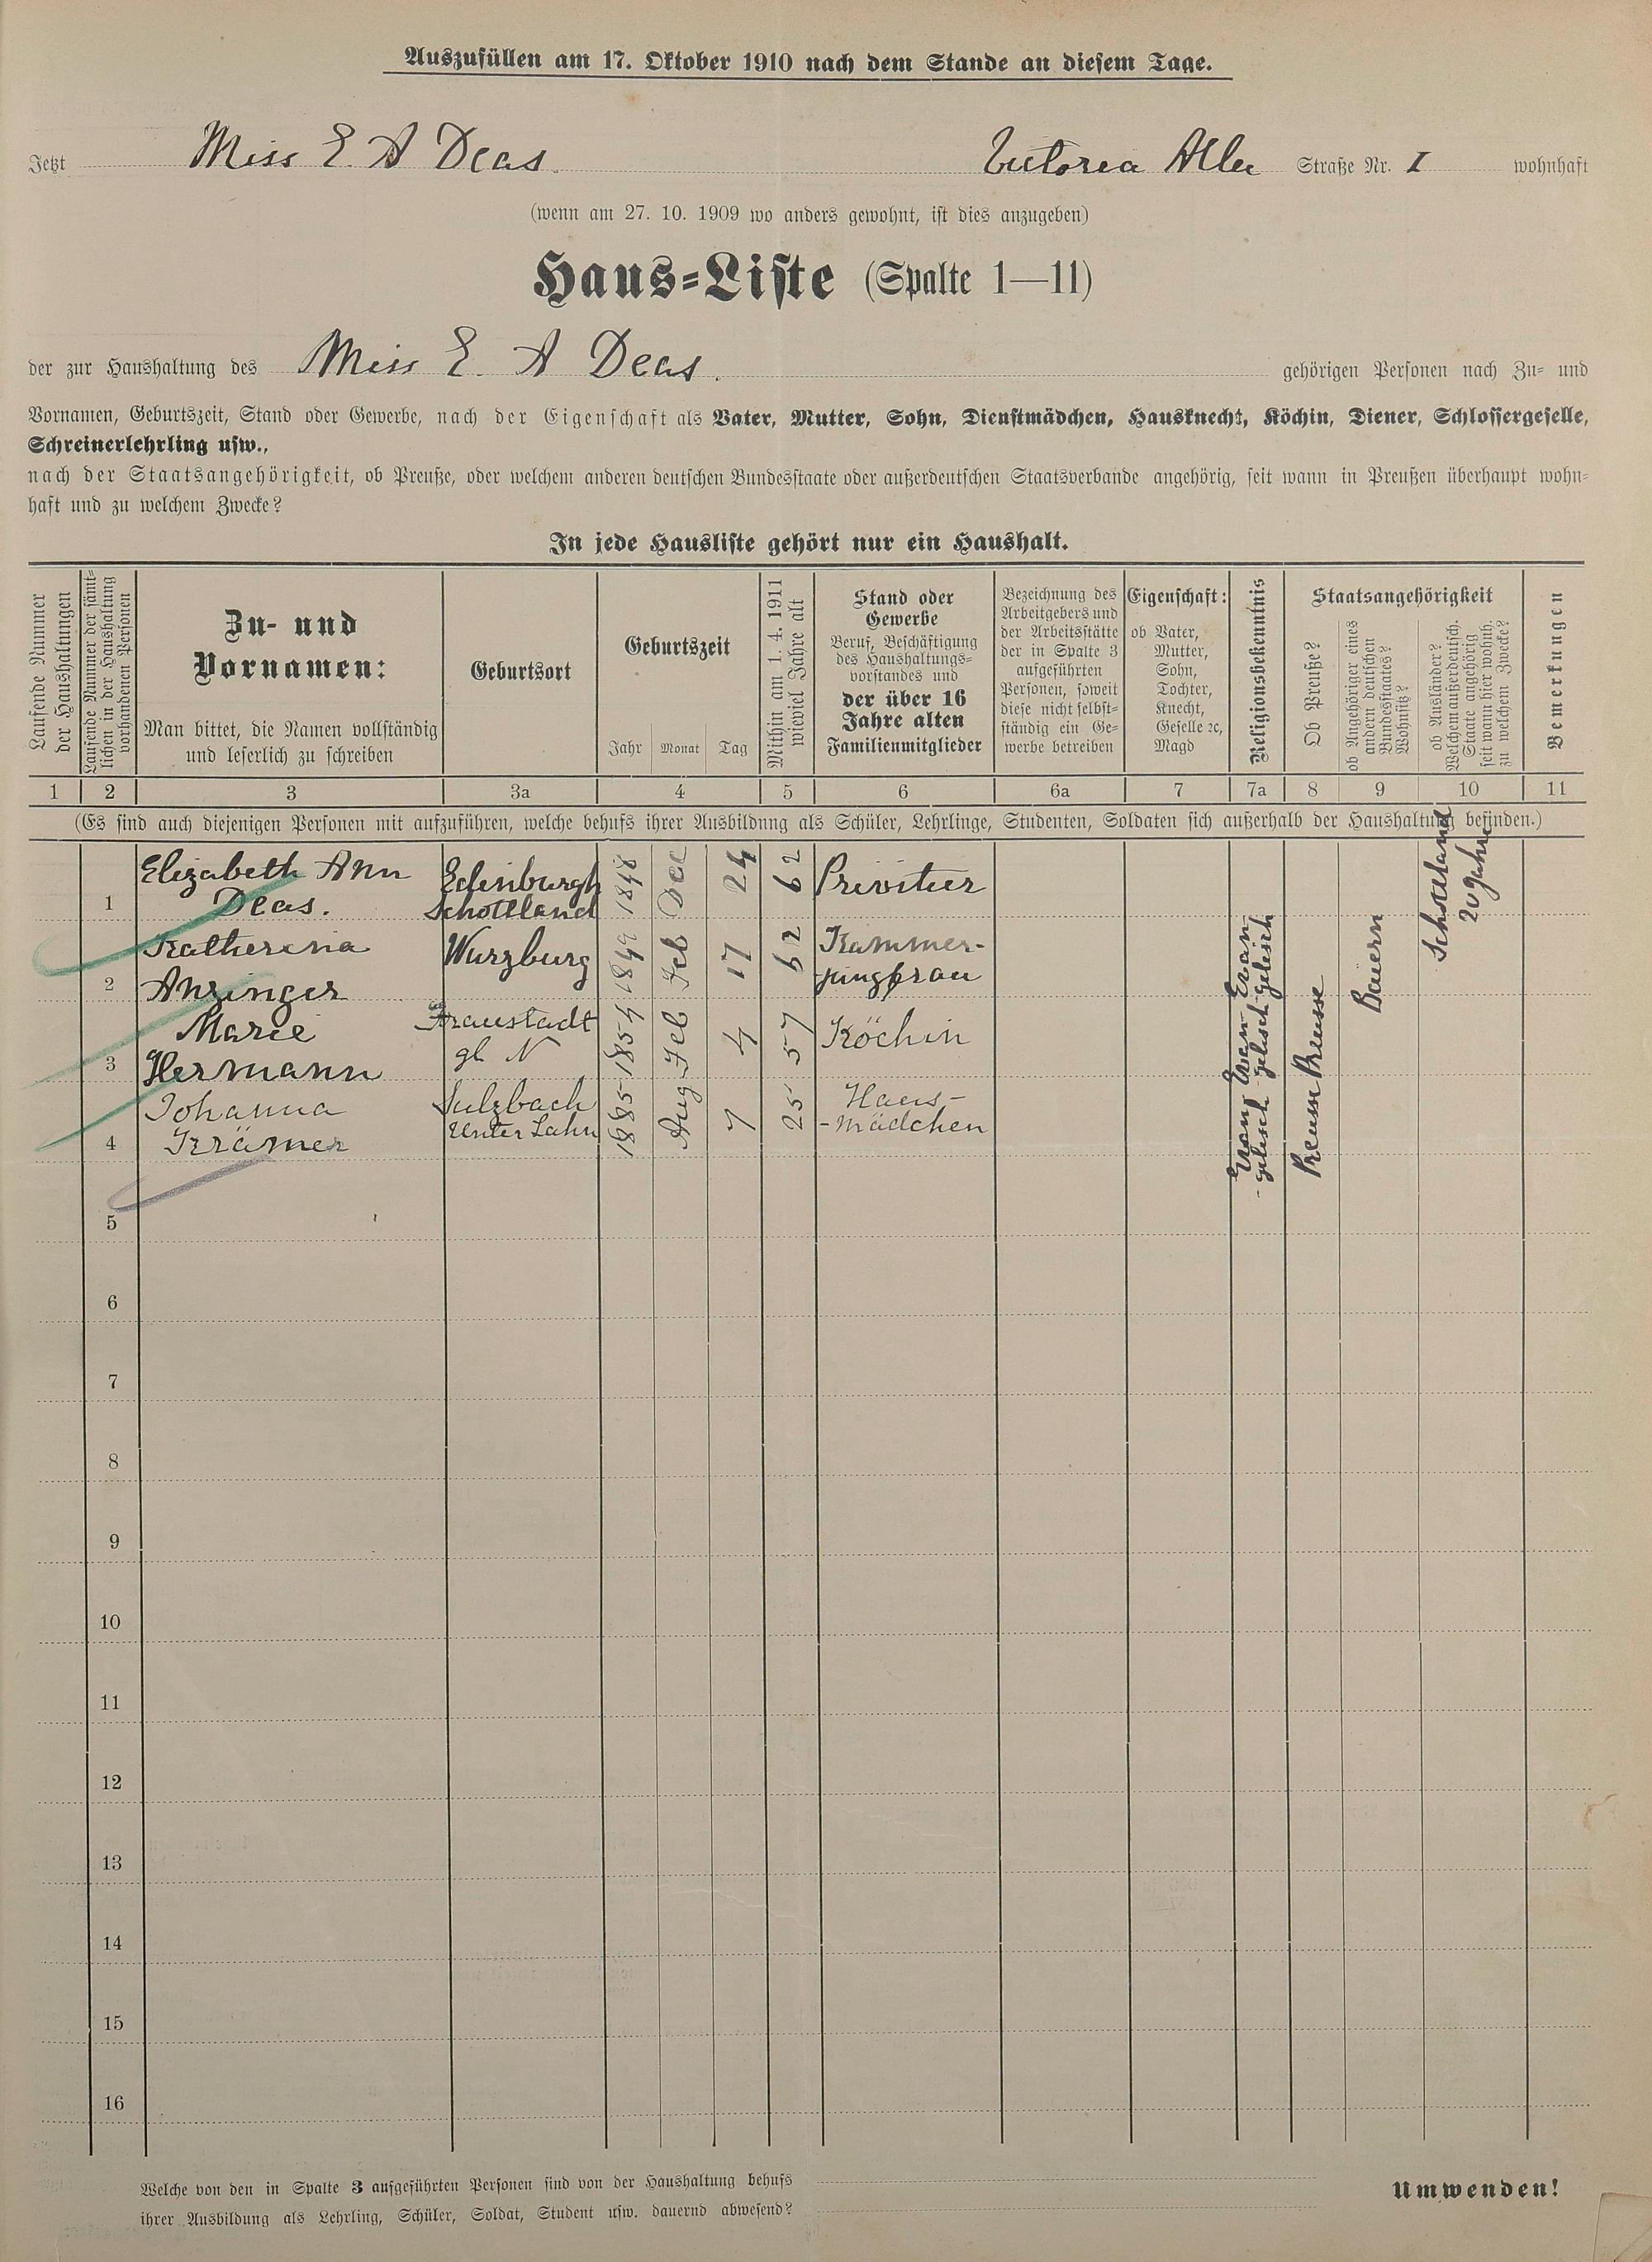 Auszufüllen am 17. Oktober 1910 nach dem Stande an diesem Tage.
Jetzt Miss E A Deas. Victoria Allee Straße Nr. 1 wohnhaft
(wenn am 27. 10. 1909 wo anders gewohnt, ist dies anzugeben)
Haus-Liste (Spalte 1—11)
der zur Haushaltung des Miss E. A Deas. gehörigen Personen nach Zu- und
Vornamen, Geburtszeit, Stand oder Gewerbe, nach der Eigenschaft als Vater, Mutter, Sohn, Dienstmädchen, Hausknecht, Köchin, Diener, Schlossergeselle,
Schreinerlehrling usw.,
nach der Staatsangehörigkeit, ob Preuße, oder welchem anderen deutschen Bundesstaate oder außerdeutschen Staatsverbande angehörig, seit wann in Preußen überhaupt wohn-
haft und zu welchem Zwecke?
In jede Hausliste gehört nur ein Haushalt.
Laufende Nummer
der Haushaltungen
Laufende Nummer der sämt-
lichen in der Haushaltung
vorhandenen Personen
Zu- und
Vornamen:
Man bittet, die Namen vollständig
und leserlich zu schreiben
Geburtsort
Geburtszeit
Jahr Monat Tag
Mithin am 1. 4. 1911
wieviel Jahre alt
Stand oder
Gewerbe
Beruf, Beschäftigung
des Haushaltungs-
vorstandes und
der über 16
Jahre alten
Familienmitglieder
Bezeichnung des
Arbeitgebers und
der Arbeitsstätte
der in Spalte 3
aufgeführten
Personen, soweit
diese nicht selbst-
ständig ein Ge-
werbe betreiben
Eigenschaft:
ob Vater,
Mutter,
Sohn,
Tochter,
Knecht,
Geselle ꝛc,
Magd
Religionsbekenntnis
Staatsangehörigkeit
Ob Preuße?
ob Angehöriger eines
andern deutschen
Bundesstaates?
Wohnsitz?
ob Ausländer?
Welchem außerdeutsch.
Staate angehörig
seit wann hier wohnh.
zu welchem Zwecke?
Bemerkungen
1 2 3 3a 4 5 6 6a 7 7a 8 9 10 11
(Es sind auch diejenigen Personen mit aufzuführen, welche behufs ihrer Ausbildung als Schüler, Lehrlinge, Studenten, Soldaten sich außerhalb der Haushaltung befinden.)
Elizabeth Ann Edinburgh 1848 Dec 24 62 Privitier Schottland
1 Deas. Schottland 20 Jahre
Katherina Wurzburg 1849 Feb 17 62 Kammer- Evan- Baiern
2 Anzinger jungfrau gelisch
Marie Fraustadt 1854 Feb 4 57 Köchin Evan- Preusse
3 Hermann gl N gelisch
Johanna Sulzbach 1885 Aug 7 25 Haus- Evan
4 Krämer Unter Lahn -Mädchen -gelisch
5
6
7
8
9
10
11
12
13
14
15
16
Welche von den in Spalte 3 aufgeführten Personen sind von der Haushaltung behufs
ihrer Ausbildung als Lehrling, Schüler, Soldat, Student usw. dauernd abwesend?
Umwenden!